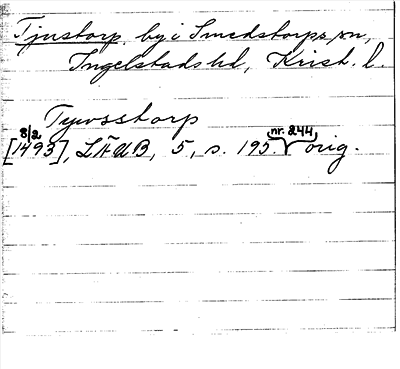 Tjustorp, by i Smedstorps sn,
Ingelstads hd, Krist. l.
Tywsstorp
8/2
[1493], LÄUB, 5, s. 195. nr. 244 orig.